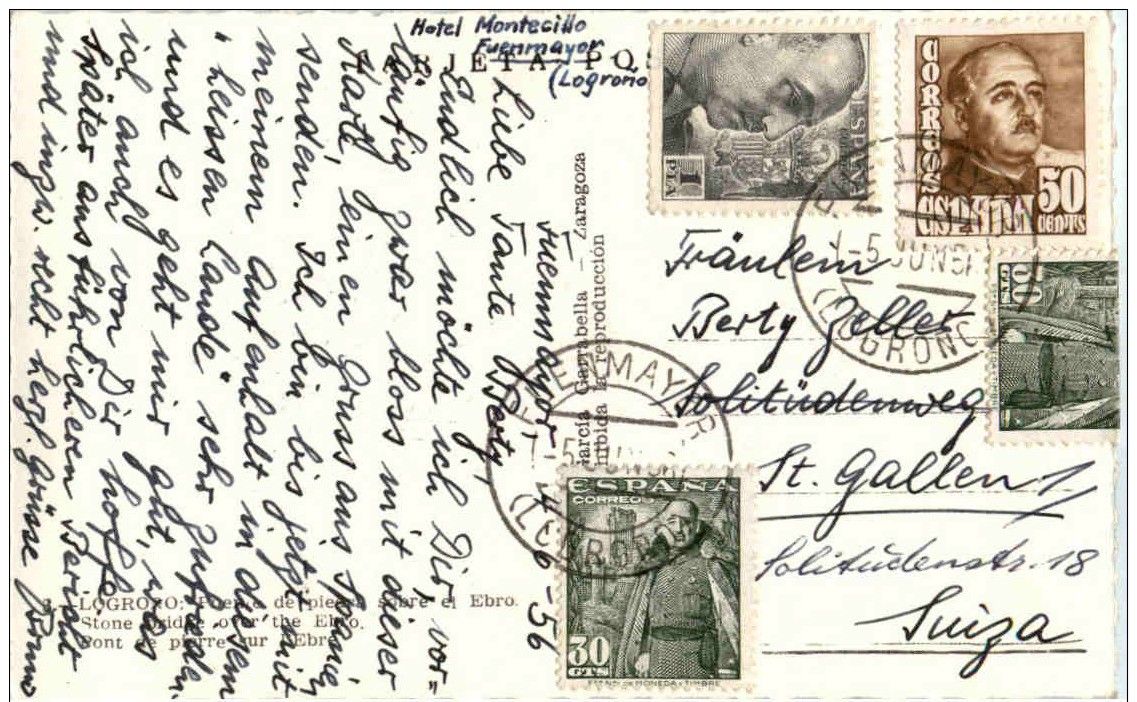 Hotel Montecillo
Fuenmayor
(Logrono
TARJETA POS
Fuenmayor, 4-6-56
Liebe Tante Berty,
Endlich möchte ich Dir, vor=
läufig zwar blos mit dieser
Karte, einen Gruss aus Spanien
senden. Ich bin bis jetzt mit
meinem Aufenhalt in diesem
"heissen Lande" sehr zufrieden
und es geht mir gut, was
ich auch von Dir hoffe.
Später ausführlicheren Bericht
und inzw. recht herzl. Grüsse Bruno
García Garrabella - Zaragoza
reproducción
LOGROÑO: Puente de piedra sobre el Ebro.
Stone bridge over the Ebro.
Pont de pierre sur l'Ebre.
ESPAÑA
1
PTA
CORREOS
ESPAÑA
50
CENTS
FUENMAYOR
-5 JUN 56
(LOGROÑO)
Fräulein
Berty Zeller
Solitüdenweg
St. Gallen 1
Solitüdenstr. 18
Suiza
FUENMAYOR
(LOGROÑO)
ESPAÑA
CORREOS
30
CTS